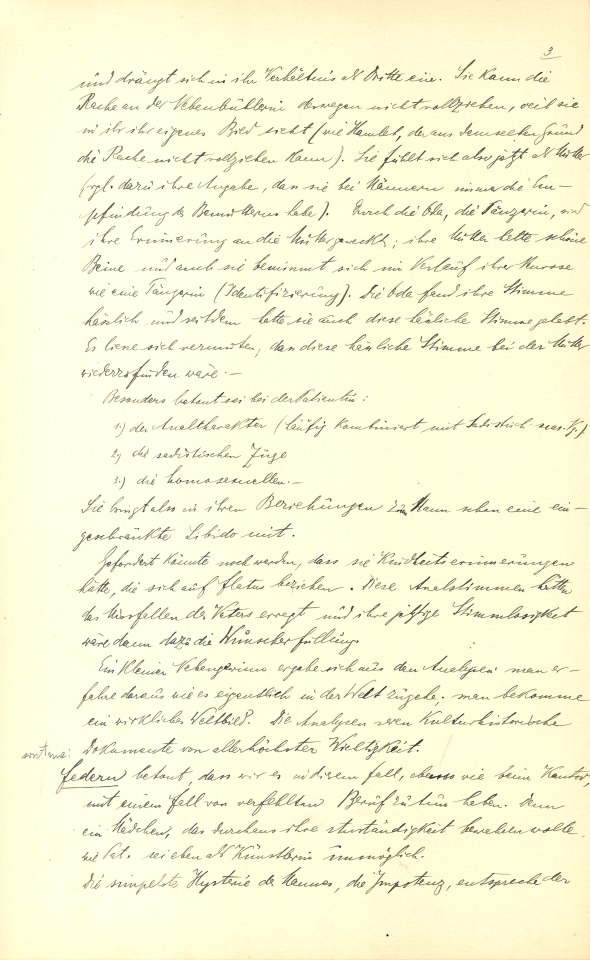 3
und drängt sich in ihr Verhältnis als Dritte ein. Sie kann die
Rache an der Nebenbuhlerin deswegen nicht vollziehen, weil sie
in ihr ihr eigenes Bild sieht (wie Hamlet, der aus demselben Grund
die Rache nicht vollziehen kann). Sie fühlt sich also jetzt als Mutter
(vgl. dazu ihre Angabe, dass sie bei Männern immer die Em-
pfindung des Bemutterns habe). Durch die Oda, die Tänzerin, wird
ihre Erinnerung an die Mutter geweckt; ihre Mutter hatte schöne
Beine und auch sie benimmt sich im Verlauf ihrer Neurose
wie eine Tänzerin (Identifizierung). Die Oda fand ihre Stimme
hässlich und seitdem hatte sie auch diese hässliche Stimme gehabt.
Es liesse sich vermuten, dass diese hässliche Stimme bei der Mutter
wiederzufinden wäre.-
Besonders betont sei bei der Patientin:
1.) der Analcharakter (häufig kombiniert mit Sadistisch-
2.) die sadistischen Züge
3.) die homosexuellen.-
Sie bringt also in ihren Beziehungen zum Mann schon eine ein-
geschränkte Libido mit.
Gefordert könnte noch werden, dass sie Kindheitserinnerungen
hätte, die sich auf flatus beziehen. Diese Analstimmen hätten
das Missfallen des Vaters erregt und ihre jetzige Stimmlosigkeit
wäre dann dazu die Wunscherfüllung.
Ein kleiner Nebengewinn ergäbe sich aus den Analysen: man er-
fahre daraus wie es eigentlich in der Welt zugehe; man bekomme
ein wirkliches Weltbild. Die Analysen seien kulturhistorische
Dokumente von allerhöchster Wichtigkeit.
Federn betont, dass wir es in diesem Fall, ebenso wie beim Kantor,
mit einem Fall von verfehltem Beruf zu tun haben. Denn
ein Mädchen, das durchaus ihre Anständigkeit bewahren wolle
wie Pat. sei eben als Künstlerin unmöglich.
Die simpelste Hysterie des Mannes, die Impotenz, entspreche der